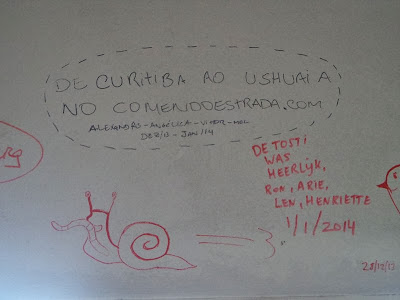 DE CURITIBA AO USHUAIA
NO COMENDOESTRADA.COM
ALEXANDRO - ANGÉLICA - VITOR - MEL
DEZ/13 - JAN/14
DE TOSTI
WAS
HEERLIJK,
RON, ARIE,
LEN, HENRIETTE
1/1/2014
28/12/13